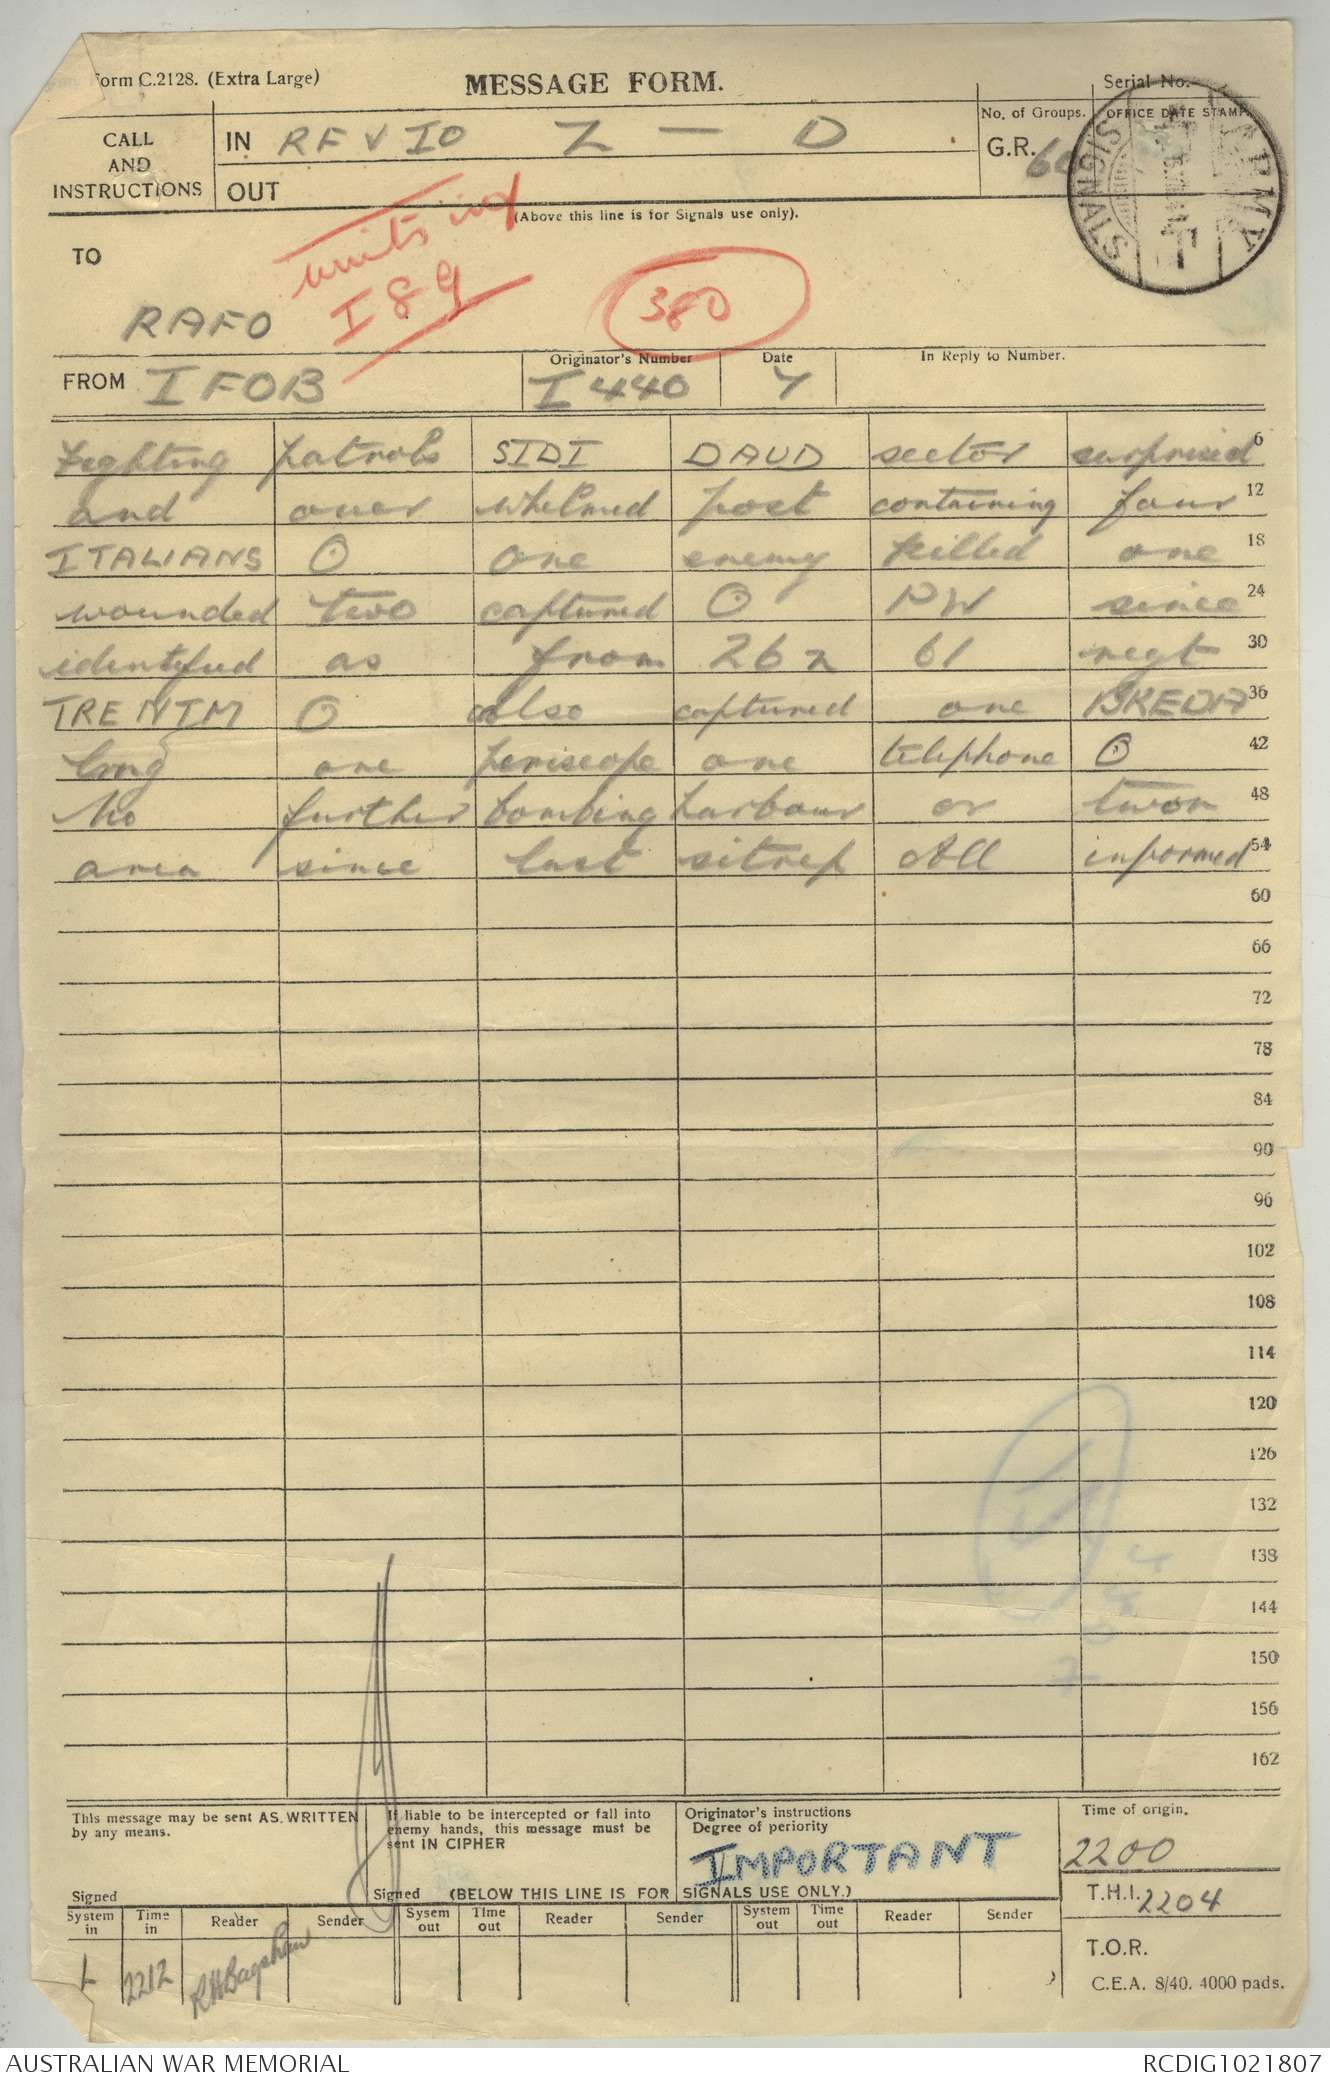 Form C.2128. (Extra Large)
MESSAGE FORM.
Serial No.
CALL AND INSTRUCTIONS
IN RF V IO Z — D
No. of Groups.
G.R. 60
OFFICE DATE STAMP
ARMY SIGNALS
OUT
(Above this line is for Signals use only).
TO
RAFO
units in
I 89
380
FROM IFOB
Originator's Number
I 440
Date
7
In Reply to Number.
Fighting patrols SIDI DAUD sector surprised 6
and over whelmed post containing four 12
ITALIANS O one enemy killed one 18
wounded two captured O PW since 24
identified as from 26 61 regt 30
TRENTM O also captured one BREDA 36
long one periscope one telephone O 42
No further bombing harbour or town 48
area since last sitrep All informed 54
60
66
72
78
84
90
96
102
108
114
120
126
132
138
144
150
156
162
This message may be sent AS WRITTEN by any means.
Signed
If liable to be intercepted or fall into enemy hands, this message must be sent IN CIPHER
Signed
Originator's instructions
Degree of periority
IMPORTANT
Time of origin.
2200
T.H.I. 2204
(BELOW THIS LINE IS FOR SIGNALS USE ONLY.)
System in Time in Reader Sender Sysem out Time out Reader Sender System out Time out Reader Sender
L 2212 RHBagshaw
T.O.R.
C.E.A. 8/40. 4000 pads.
AUSTRALIAN WAR MEMORIAL
RCDIG1021807